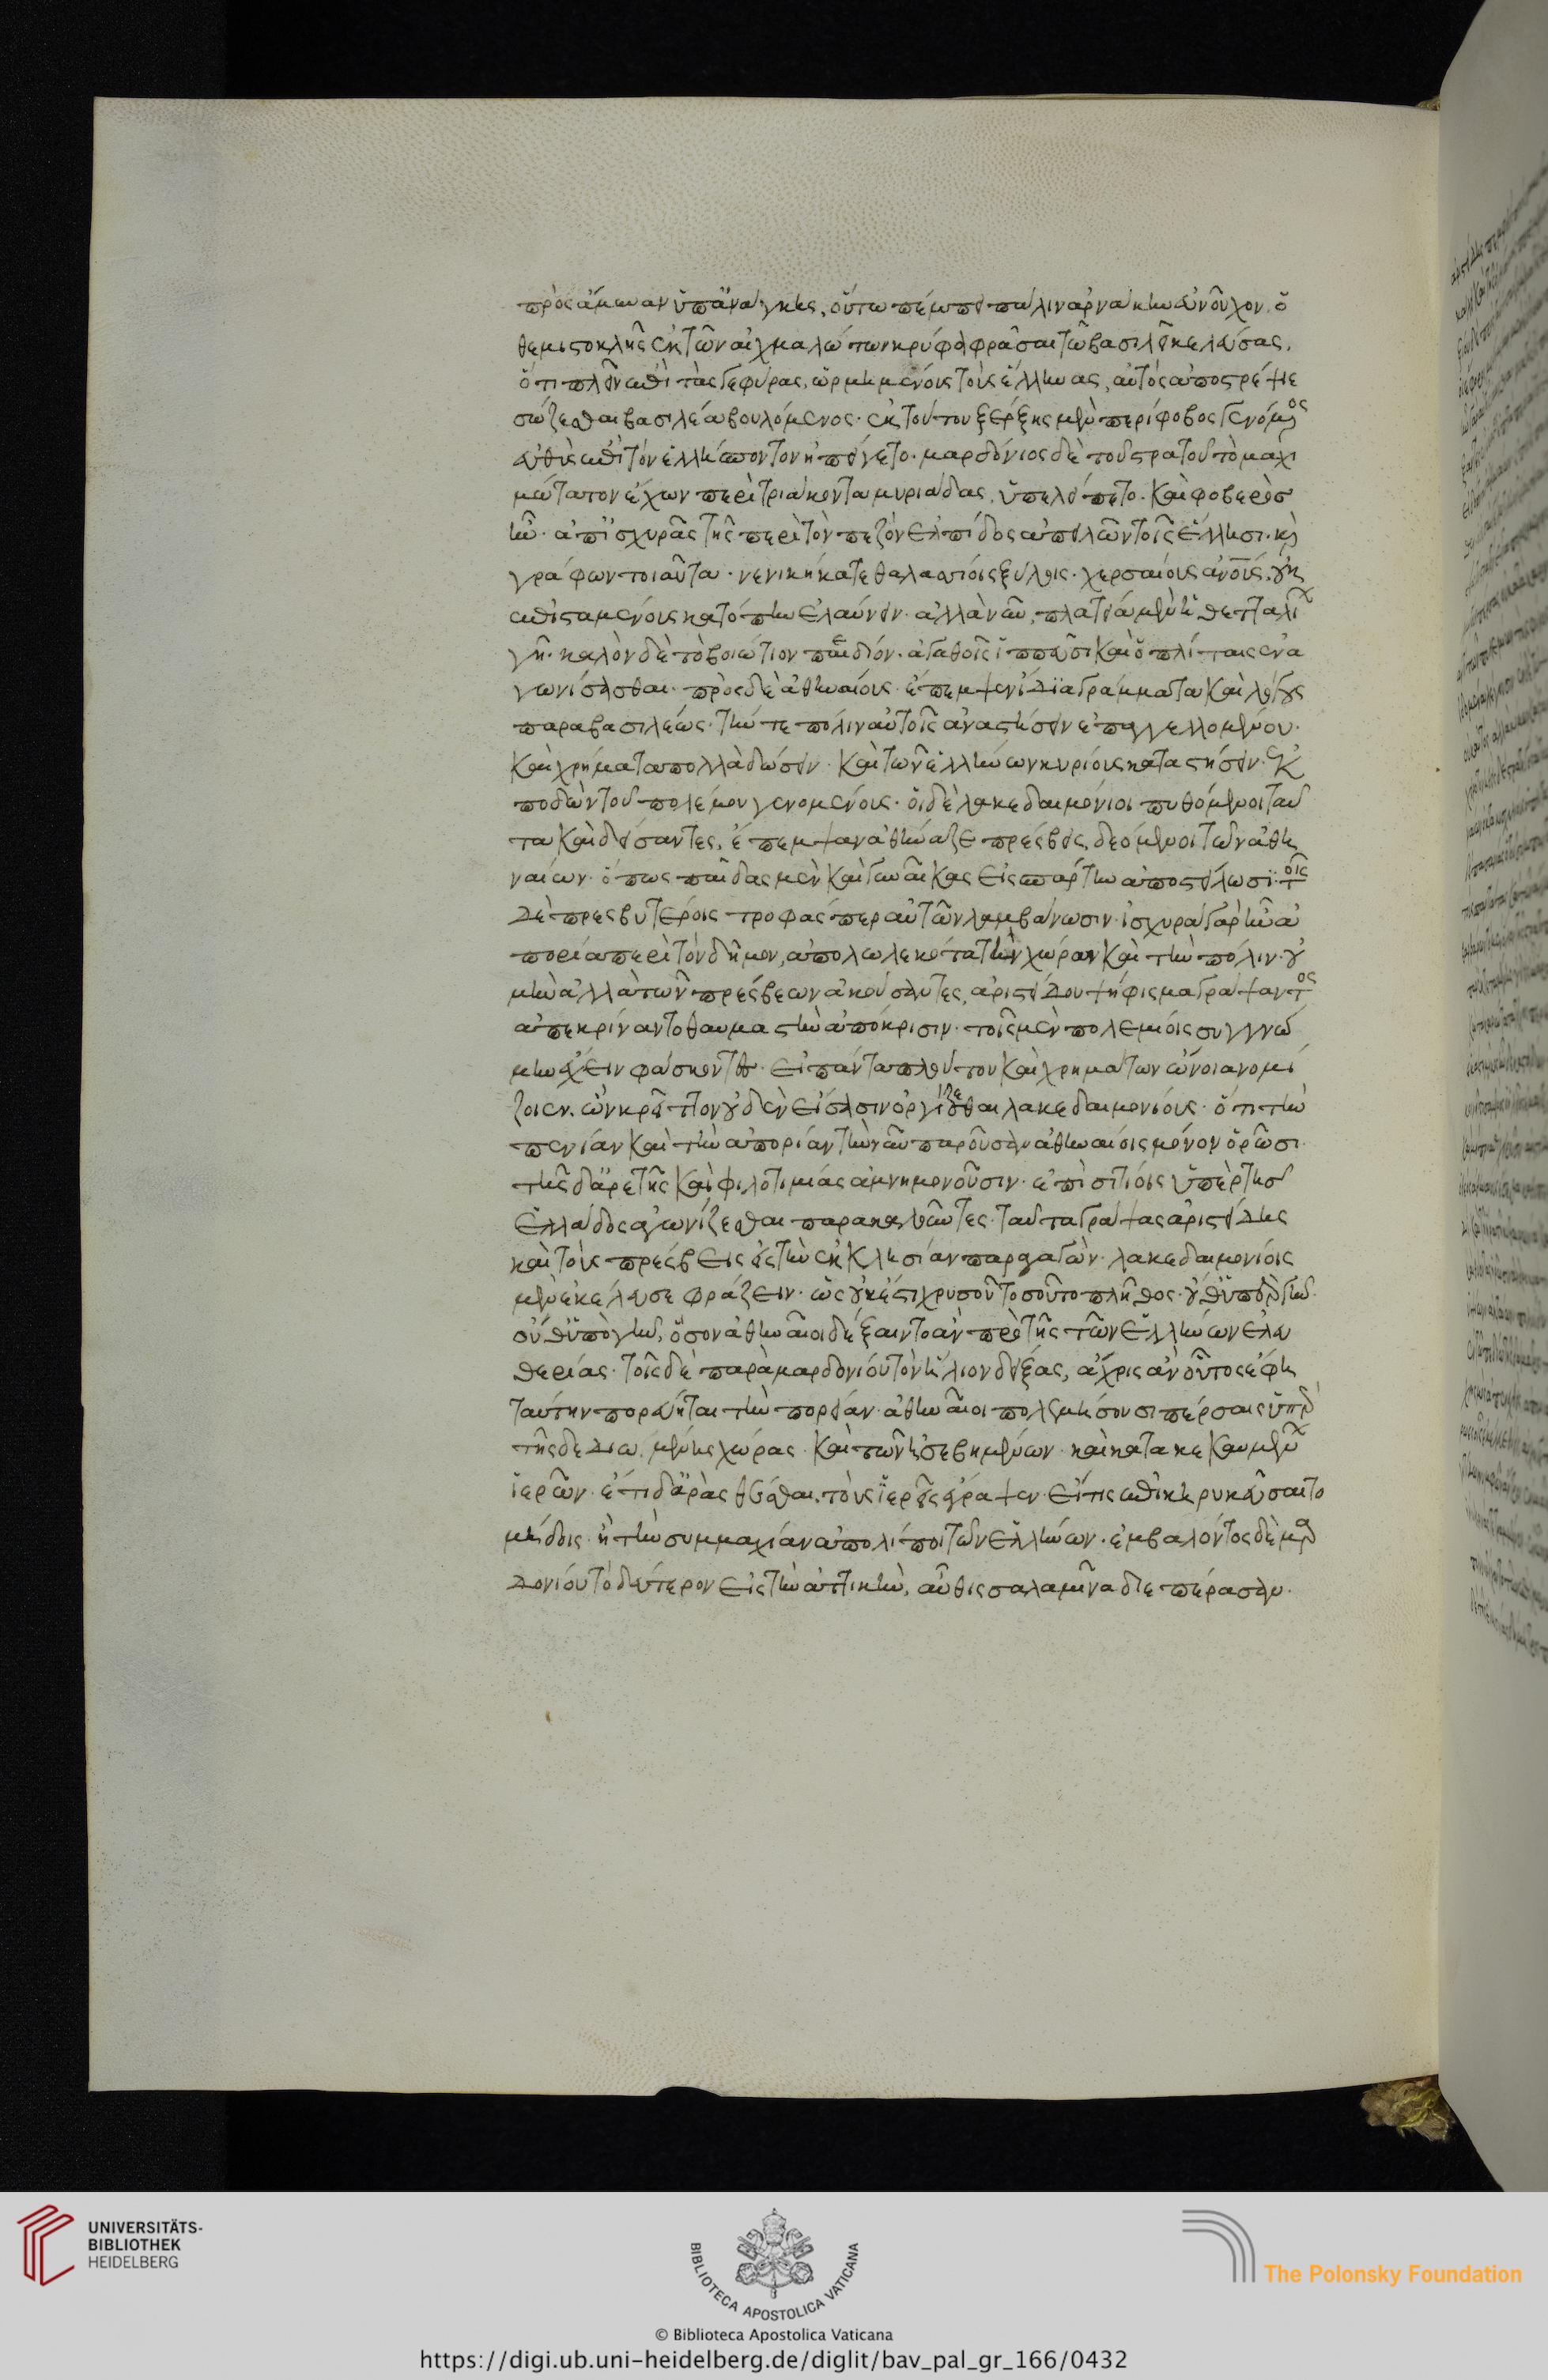 πρὸς ἄμυναν ὑπ' ἀνάγκης, οὕτω πέμπει πάλιν ἀρνάκην εὐνοῦχον. ὁ
θεμιστοκλῆς ἐκ τῶν αἰχμαλώτων κρύφα φράσαι τῷ βασιλεῖ κελεύσας,
ὅτι πλεῖν ἐπὶ τὰς γεφύρας, ὡρμημένους τοὺς ἕλληνας, αὐτὸς ἀποστρέψειε
σώζεσθαι βασιλέα βουλόμενος. ἐκ τούτου ξέρξης μὲν περίφοβος γενόμενος
εὐθὺς ἐπὶ τὸν ἑλλήσποντον ἠπείγετο. μαρδόνιος δὲ τοῦ στρατοῦ τὸ μαχι
μώτατον ἔχων περὶ τριάκοντα μυριάδας, ὑπελείπετο. καὶ φοβερὸς
ἦν. ἀπ' ἰσχυρᾶς τῆς περὶ τὸν πεζὸν ἐλπίδος ἀπειλῶν τοῖς ἕλλησι. καὶ
γράφων τοιαῦτα. νενικήκατε θαλασσίοις ξύλοις. χερσαίους ἀνους, οὐκ
ἐπισταμένους κατόπην ἐλαύνειν. ἀλλὰ νῦν, πλατεῖα μὲν ἡ θετταλῶν
γῆ. καλὸν δὲ τὸ βοιώτιον πεδίον. ἀγαθοῖς ἱππεῦσι καὶ ὁπλίταις ἐνα
γωνίσασθαι. πρὸς δὲ ἀθηναίους ἔπεμψεν ἰδίᾳ γράμματα καὶ λόγους
παρὰ βασιλέως. τήν τε πόλιν αὐτοῖς ἀναστήσειν ἐπαγγελλομένου.
καὶ χρήματα πολλὰ δώσειν. καὶ τῶν ἑλλήνων κυρίους καταστήσειν. ἐκ
ποδὼν τοῦ πολέμου γενομένους. οἱ δὲ λακεδαιμόνιοι πυθόμενοι ταῦ
τα καὶ δείσαντες, ἔπεμψαν ἀθήναζε πρέσβεις, δεόμενοι τῶν ἀθη
ναίων. ὅπως παῖδας μὲν καὶ γυναῖκας εἰς σπάρτην ἀποστείλωσι. τοῖς
δὲ πρεσβυτέροις τροφὰς περ αὐτῶν λαμβάνωσιν. ἰσχυρὰ γὰρ ἦν ἀ
πορία περὶ τὸν δῆμον, ἀπολωλεκότα τὴν χώραν καὶ τὴν πόλιν. οὐ
μὴν ἀλλὰ τῶν πρέσβεων ἀκούσαντες, ἀριστείδου ψήφισμα γράψαντος
ἀπεκρίναντο θαυμαστὴν ἀπόκρισιν. τοῖς μὲν πολεμίοις συγγνώ
μην ἔχειν φάσκοντες. εἰ πάντα πλούτου καὶ χρημάτων ὤνια νομί
ζοιεν. ὧν κρεῖττον οὐδὲν εἴσασιν ὀργίζεσθαι λακεδαιμονίοις. ὅτι τὴν
πενίαν καὶ τὴν ἀπορίαν τὴν νῦν παροῦσαν ἀθηναίοις μόνον ὁρῶσι.
τῆς δ' ἀρετῆς καὶ φιλοτιμίας ἀμνημονοῦσιν. ἐπὶ σιτίοις ὑπὲρ τῆς
ἑλλάδος ἀγωνίζεσθαι παρακαλοῦντες. ταῦτα γράψας ἀριστείδης
καὶ τοὺς πρέσβεις εἰς τὴν ἐκκλησίαν παραγαγὼν. λακεδαιμονίοις
μὲν ἐκέλευσε φράζειν. ὡς οὐκ ἔστι χρυσοῦ τοσοῦτο πλῆθος. οὐθ' ὑπὲρ γῆν.
οὔθ' ὑπὸ γῆν, ὅσον ἀθηναῖοι δέξαιντο ἂν πρὸ τῆς τῶν ἑλλήνων ἐλευ
θερίας. τοῖς δὲ παρὰ μαρδονίου τὸν ἥλιον δείξας, ἄχρις ἂν οὗτος ἔφη
ταύτην πορεύηται τὴν πορείαν. ἀθηναῖοι πολεμήσουσι πέρσαις ὑπὲρ
τῆς δεδῃωμένης χώρας. καὶ τῶν ἠσεβημένων. καὶ κατακεκαυμένων
ἱερῶν. ἔτι δ' ἀρὰς θέσθαι. τοὺς ἱερεῖς ἔγραψεν. εἴ τις ἐπικηρυκεύσαιτο
μήδοις. ἢ τὴν συμμαχίαν ἀπολίποι τῶν ἑλλήνων. ἐμβαλόντος δὲ μαρ
δονίου τὸ δεύτερον εἰς τὴν ἀττικὴν, αὖθις σαλαμῖνα διεπέρασαν.
UNIVERSITÄTS-
BIBLIOTHEK
HEIDELBERG
BIBLIOTECA APOSTOLICA VATICANA
The Polonsky Foundation
© Biblioteca Apostolica Vaticana
https://digi.ub.uni-heidelberg.de/diglit/bav_pal_gr_166/0432